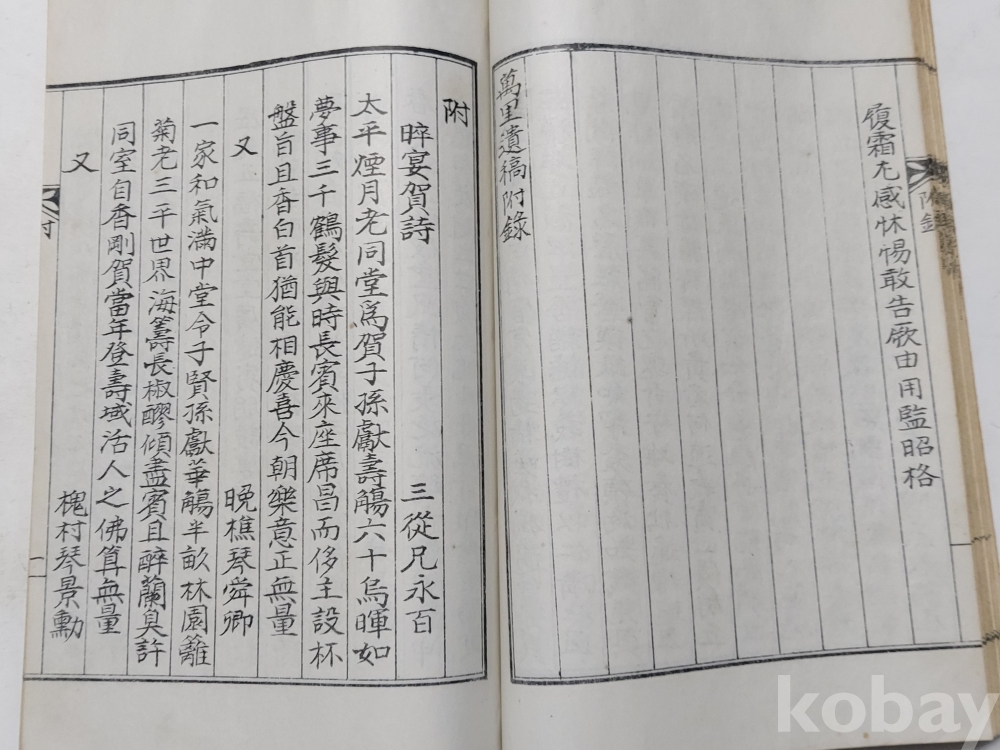 履霜尤感怵惕敢告厥由用監昭格
萬里遺稿附錄
附
晬宴賀詩 三從兄永百
太平煙月老同堂爲賀子孫獻壽觴六十烏暉如
夢事三千鶴髮與時長賓來座席昌而侈主設杯
盤旨且香白首猶能相慶喜今朝樂意正無量
又 晚樵琴舜卿
一家和氣滿中堂令子賢孫獻華觴半畝林園籬
菊老三平世界海籌長椒醪傾盡賓且醉蘭臭許
同室自香剛賀當年登壽域活人之佛算無量
又 槐村琴景勳
附錄
kobay